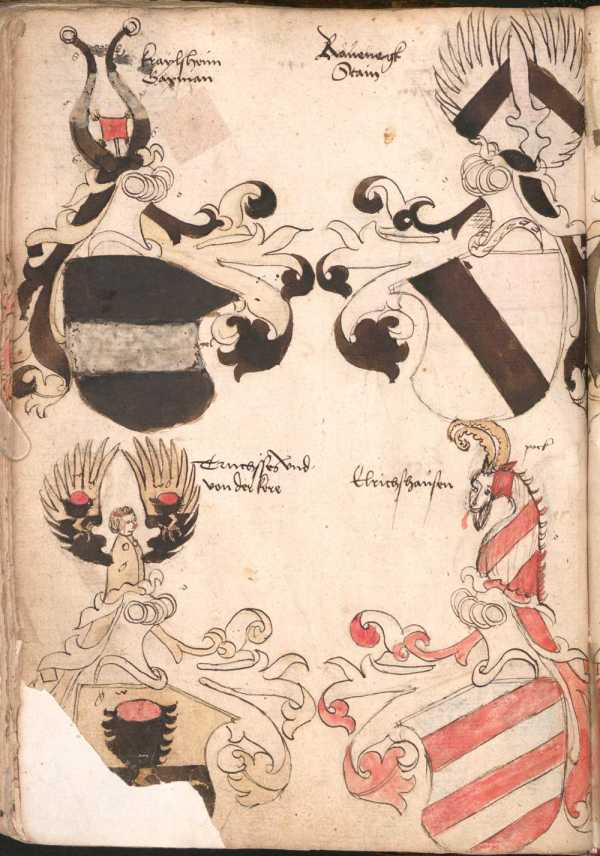 kraylsheim
Saxman
Ravenegk
Stain
Truchsses und
von der kere
Elrichshausen
pock